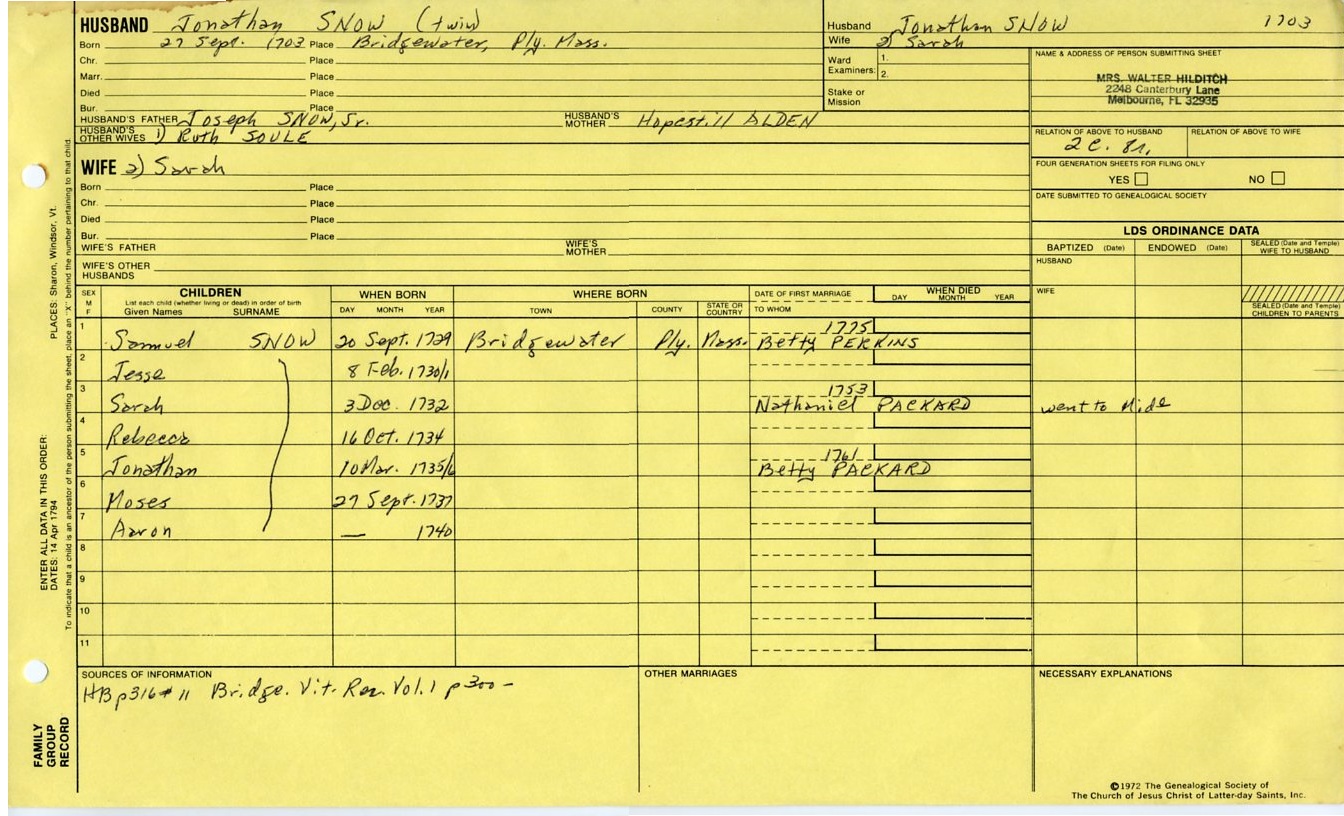 HUSBAND Jonathan SNOW (twin)
Born 27 Sept. 1703 Place Bridgewater, Ply. Mass.
Chr. Place
Marr. Place
Died Place
Bur. Place
HUSBAND'S FATHER Joseph SNOW, Jr. HUSBAND'S MOTHER Hopestill ALDEN
HUSBAND'S OTHER WIVES 1) Ruth SOULE
Husband Jonathan SNOW 1703
Wife 2) Sarah
Ward Examiners: 1.
2.
Stake or Mission
NAME & ADDRESS OF PERSON SUBMITTING SHEET
MRS. WALTER HILDITCH
2248 Canterbury Lane
Melbourne, FL 32935
RELATION OF ABOVE TO HUSBAND RELATION OF ABOVE TO WIFE
2 c.
FOUR GENERATION SHEETS FOR FILING ONLY
YES NO
DATE SUBMITTED TO GENEALOGICAL SOCIETY
WIFE 2) Sarah
Born Place
Chr. Place
Died Place
Bur. Place
WIFE'S FATHER WIFE'S MOTHER
WIFE'S OTHER HUSBANDS
LDS ORDINANCE DATA
BAPTIZED (Date) ENDOWED (Date) SEALED (Date and Temple) WIFE TO HUSBAND
HUSBAND
WIFE
SEALED (Date and Temple) CHILDREN TO PARENTS
SEX M F CHILDREN WHEN BORN WHERE BORN DATE OF FIRST MARRIAGE WHEN DIED
List each child (whether living or dead) in order of birth
Given Names SURNAME DAY MONTH YEAR TOWN COUNTY STATE OR COUNTRY TO WHOM DAY MONTH YEAR
1775
1 Samuel SNOW 20 Sept. 1729 Bridgewater Ply. Mass. Betty PERKINS
2 Jesse 8 Feb. 1730/1
1753
3 Sarah 3 Dec. 1732 Nathaniel PACKARD went to
4 Rebecca 16 Oct. 1734
1761
5 Jonathan 10 Mar. 1735/6 Betty PACKARD
6 Moses 27 Sept. 1737
7 Aaron — 1740
8
9
10
11
SOURCES OF INFORMATION OTHER MARRIAGES NECESSARY EXPLANATIONS
HB p316 # 11 Bridge. Vit. Rec. Vol. 1 p 300 -
©1972 The Genealogical Society of
The Church of Jesus Christ of Latter-day Saints, Inc.
ENTER ALL DATA IN THIS ORDER:
DATES: 14 Apr 1794 PLACES: Sharon, Windsor, Vt.
To indicate that a child is an ancestor of the person submitting the sheet, place an "X" behind the number pertaining to that child.
FAMILY
GROUP
RECORD